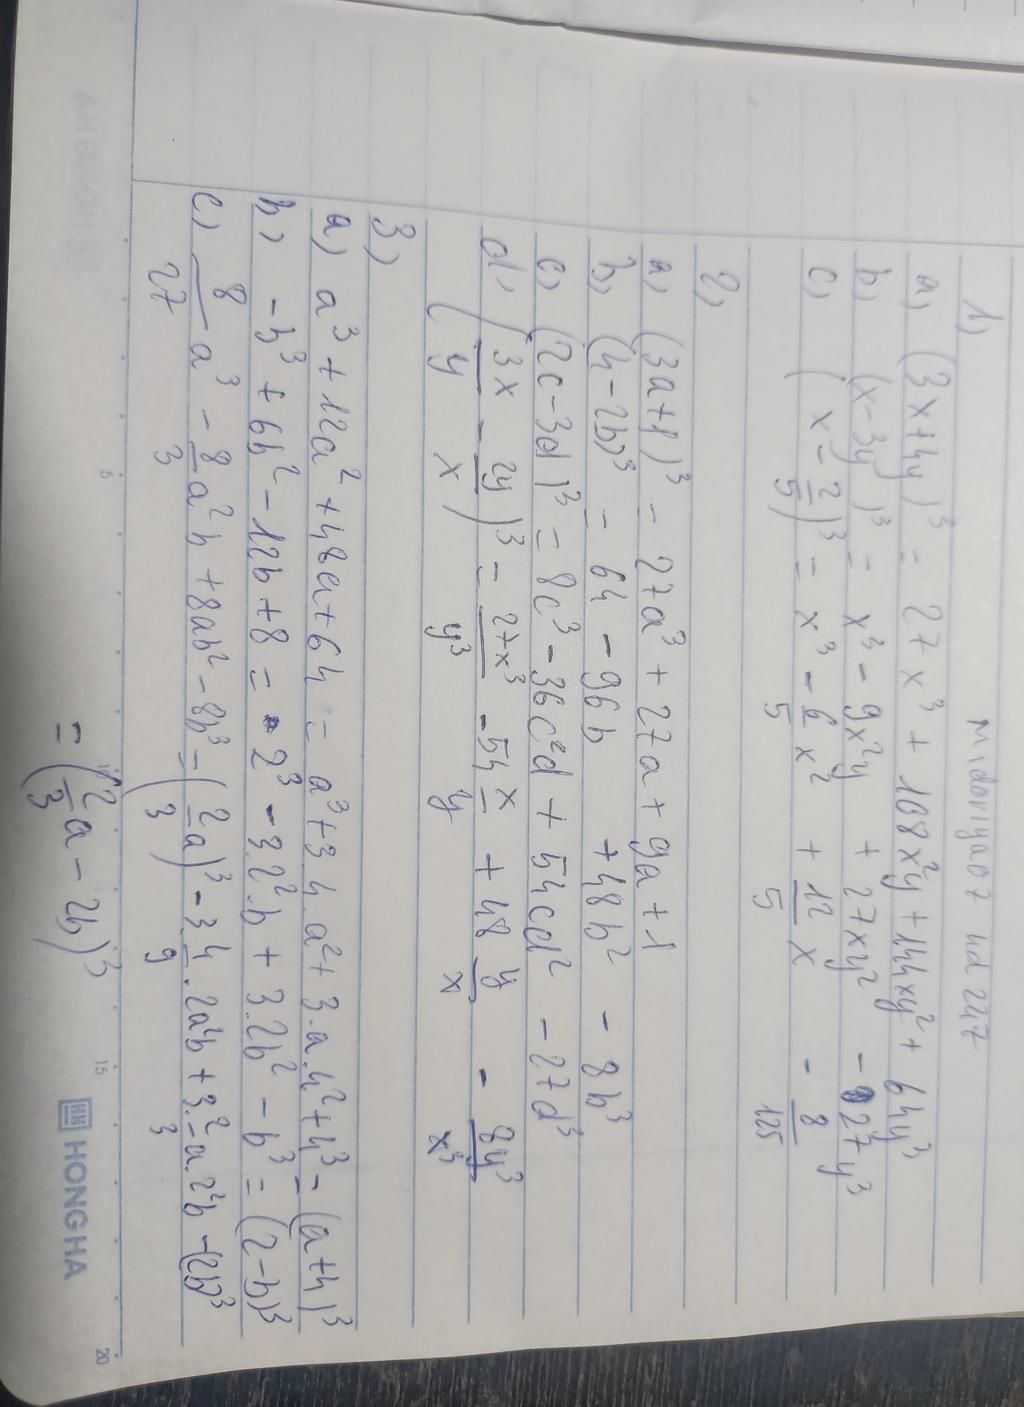 midoriya07 ud 247
1,
a, (3x+4y)³ = 27x³ + 108x²y + 144xy² + 64y³
b, (x-3y)³ = x³ - 9x²y + 27xy² - 27y³
c, (x - 2/5)³ = x³ - 6/5 x² + 12/5 x - 8/125
2,
a, (3a+1)³ = 27a³ + 27a + 9a + 1
b, (4-2b)³ = 64 - 96b + 48b² - 8b³
c, (2c-3d)³ = 8c³ - 36c²d + 54cd² - 27d³
d, (3x/y - 2y/x)³ = 27x³/y³ - 54 x/y + 48 y/x - 8y³/x³
3,
a, a³ + 12a² + 48a + 64 = a³ + 3.4.a² + 3.a.4² + 4³ = (a+4)³
b, -b³ + 6b² - 12b + 8 = 2³ - 3.2².b + 3.2b² - b³ = (2-b)³
c, 8/27 a³ - 8/3 a²b + 8ab² - 8b³ = (2/3 a)³ - 3 4/9 . 2a²b + 3.2/3 a.2²b - (2b)³
= (2/3 a - 2b)³
HONG HA
5
10
15
20